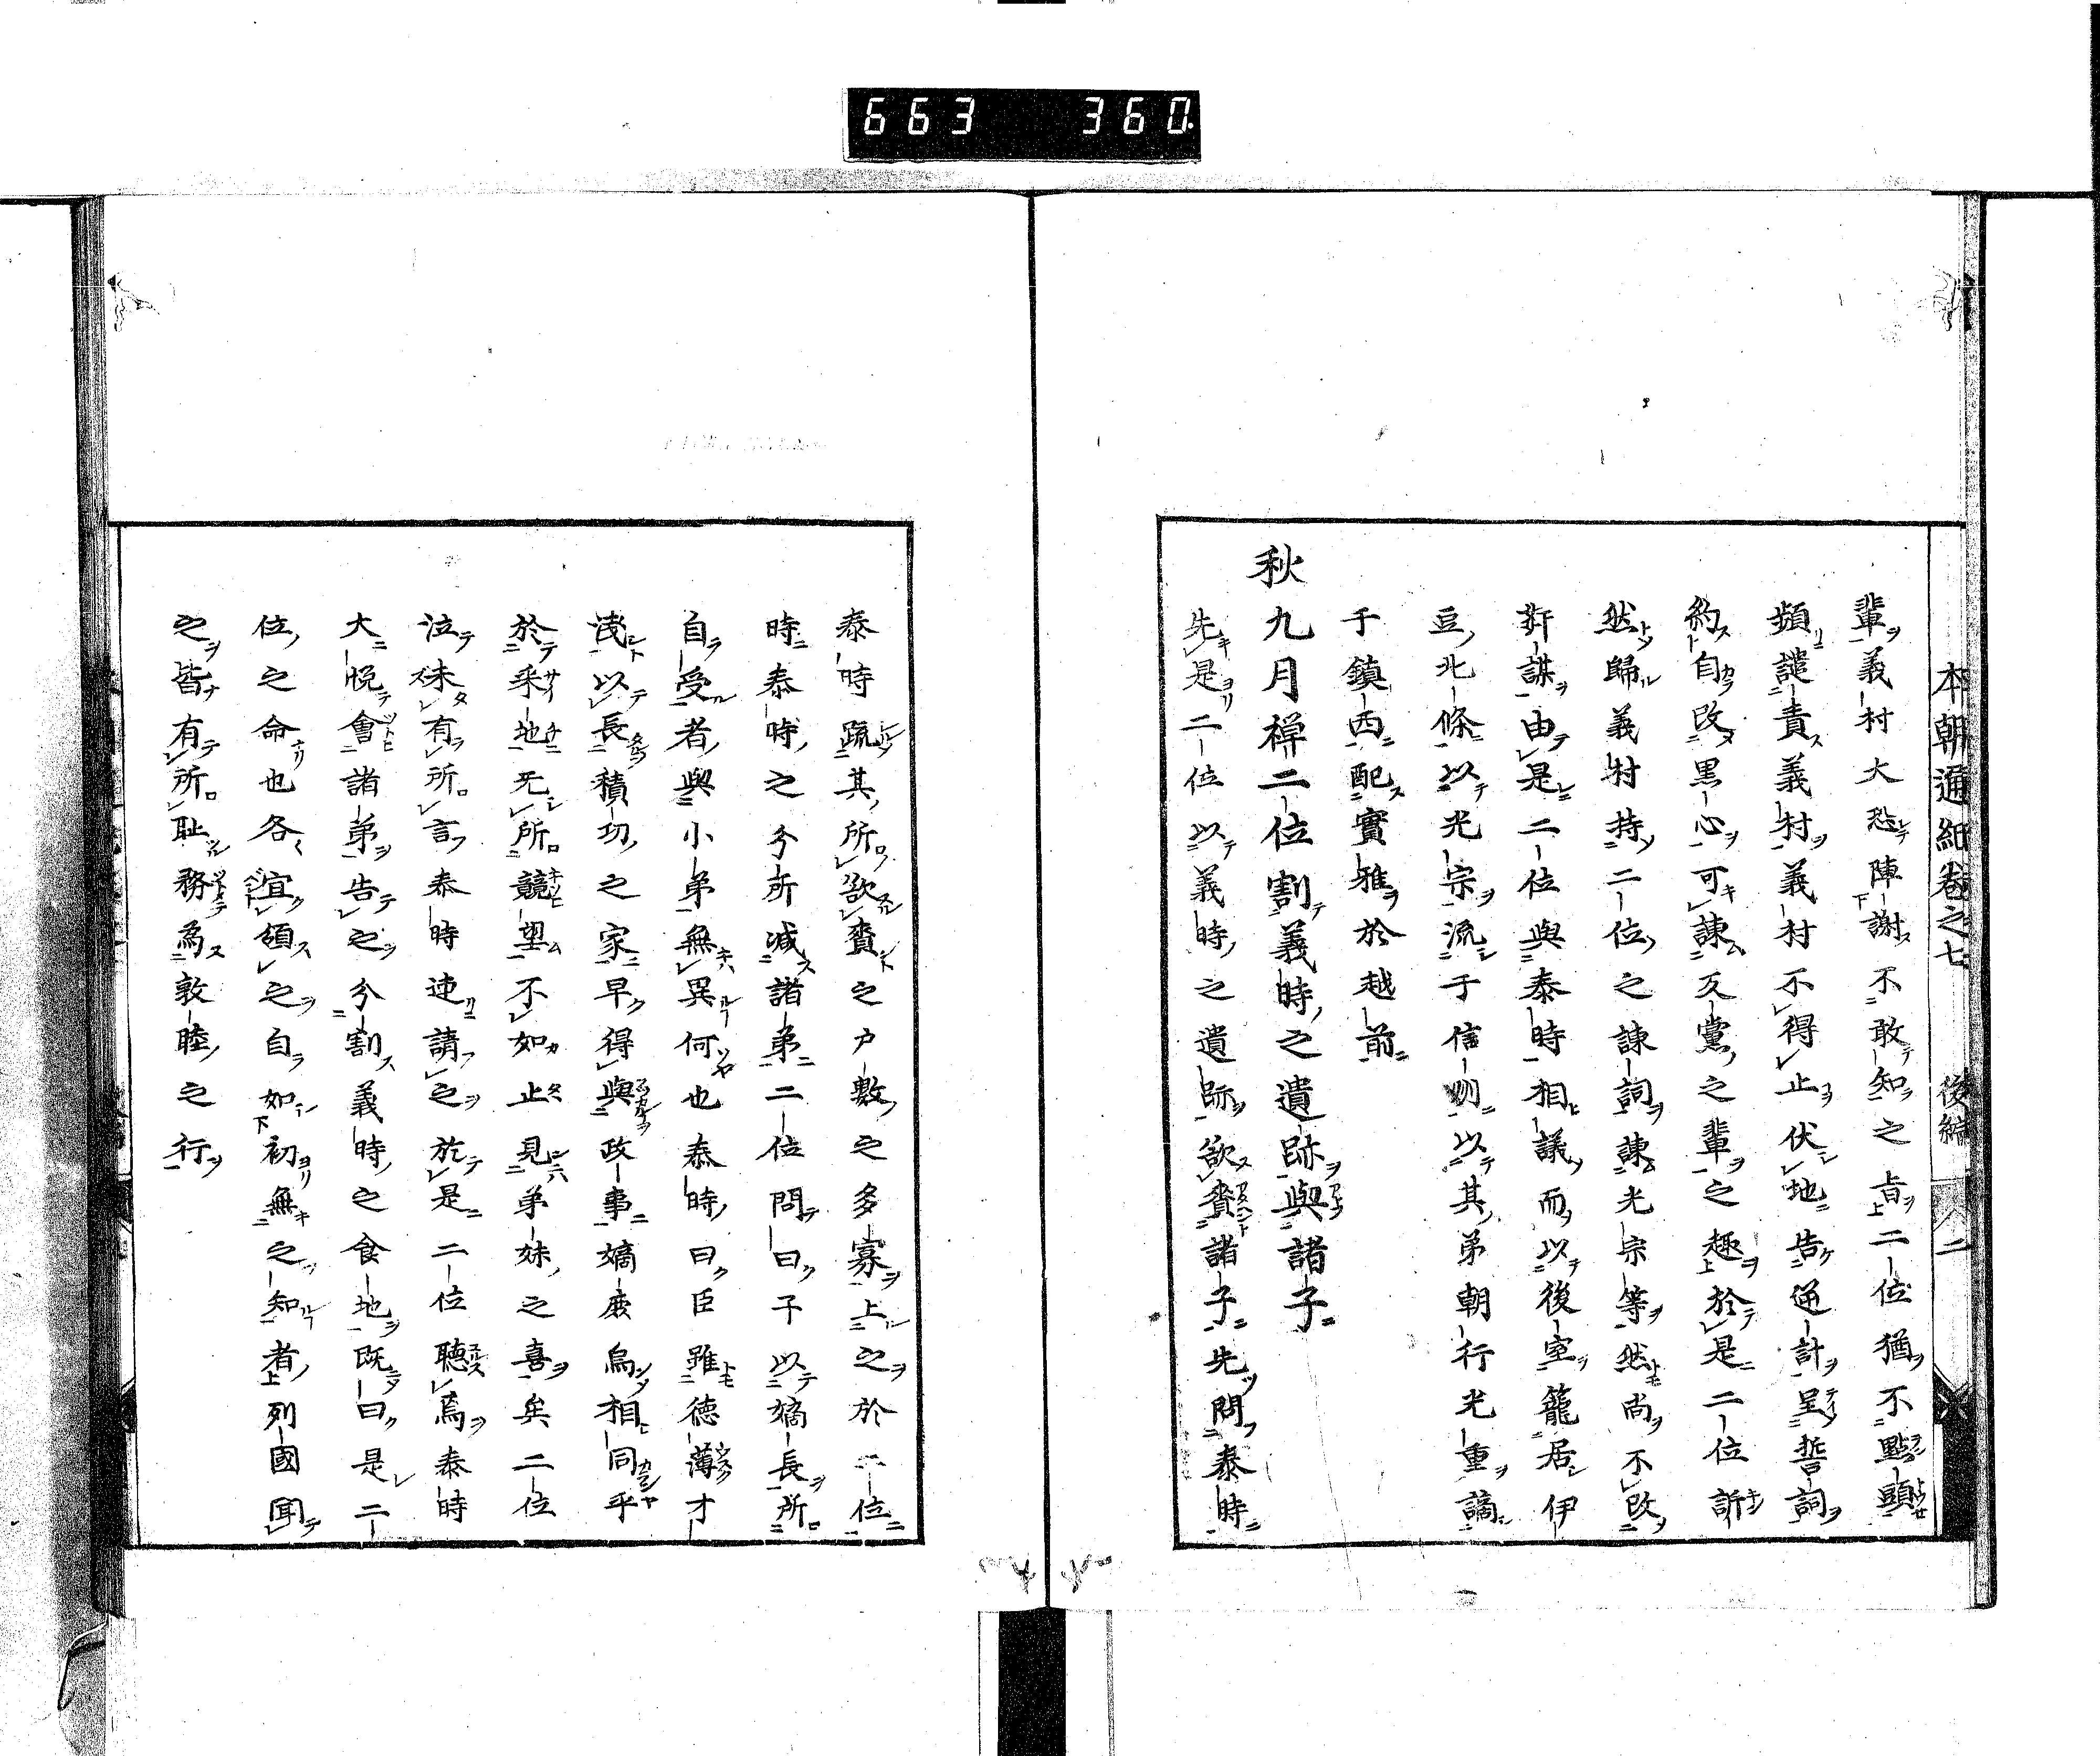 663 360
本朝通紀卷之七 後編 二
輩義村大恐陳謝不敢知之旨二位猶不點頭
頻譴責義村義村不得止伏地告逆計呈誓詞
約自改黒心可諫反黨之輩之趣於是二位訢
然歸義村持二位之諫詞諫光宗等然尚不改
姧謀由是二位與泰時相議而以後室籠居伊
豆北條以光宗流于信州以其弟朝行光重謫
于鎮西配實雅於越前
秋九月禅二位割義時之遺跡與諸子
先是二位以義時之遺跡欲賚諸子先問泰時
泰時疏其所欲賚之戸數之多寡上之於二位
時泰時之今所減諸弟二位問曰予以嫡長所
自受者與小弟無異何也泰時曰臣雖徳薄才
淺以長積功之家早得與政事嫡庶烏相同乎
於采地无所競望不如止見弟妹之喜矣二位
泣未有所言泰時連請之於是二位聴焉泰時
大悦會諸弟告之分割義時之食地既曰是二
位之命也各宜領之自如初無之知者列國聞
之皆有所耻務爲敦睦之行